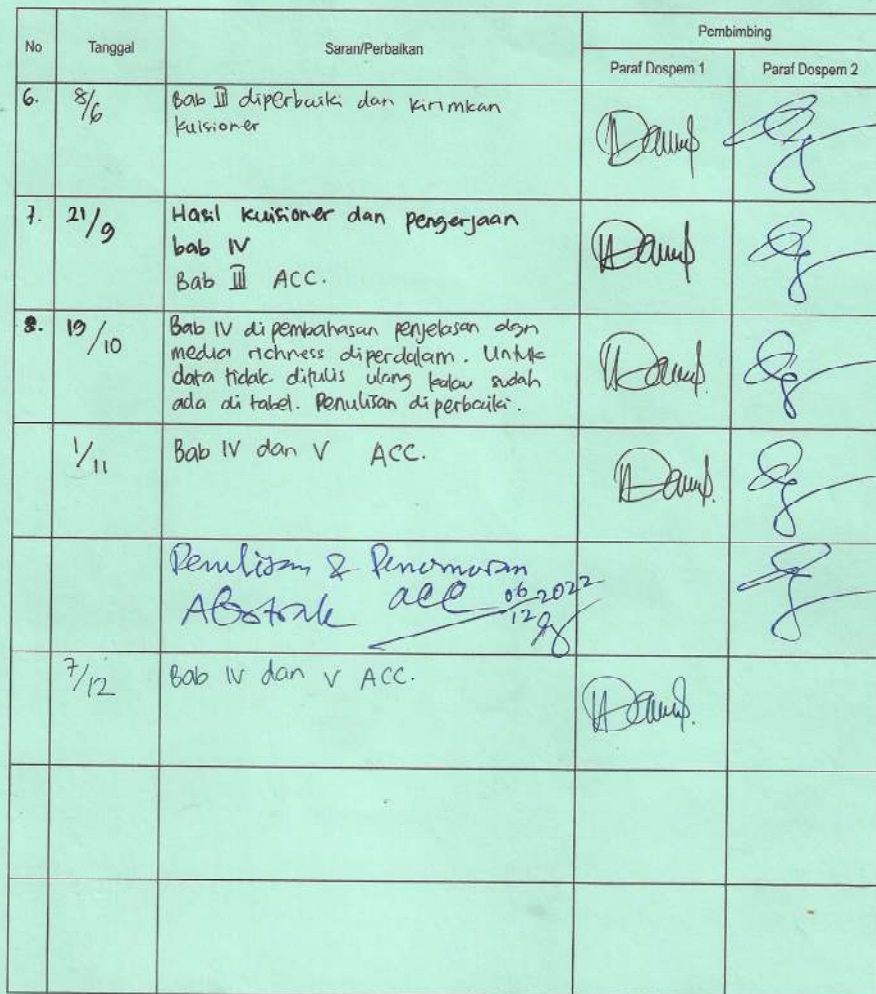 No Tanggal Saran/Perbaikan Pembimbing
Paraf Dospem 1 Paraf Dospem 2
6. 8/6 Bab III diperbaiki dan kirimkan
kuisioner
7. 21/9 Hasil kuisioner dan pengerjaan
bab IV
Bab III ACC.
8. 19/10 Bab IV di pembahasan penjelasan dgn
media richness diperdalam. Untuk
data tidak ditulis ulang kalau sudah
ada di tabel. Penulisan diperbaiki.
1/11 Bab IV dan V ACC.
Penulisan & Penomoran
Abstrak acc 06/12 2022
7/12 Bab IV dan V ACC.